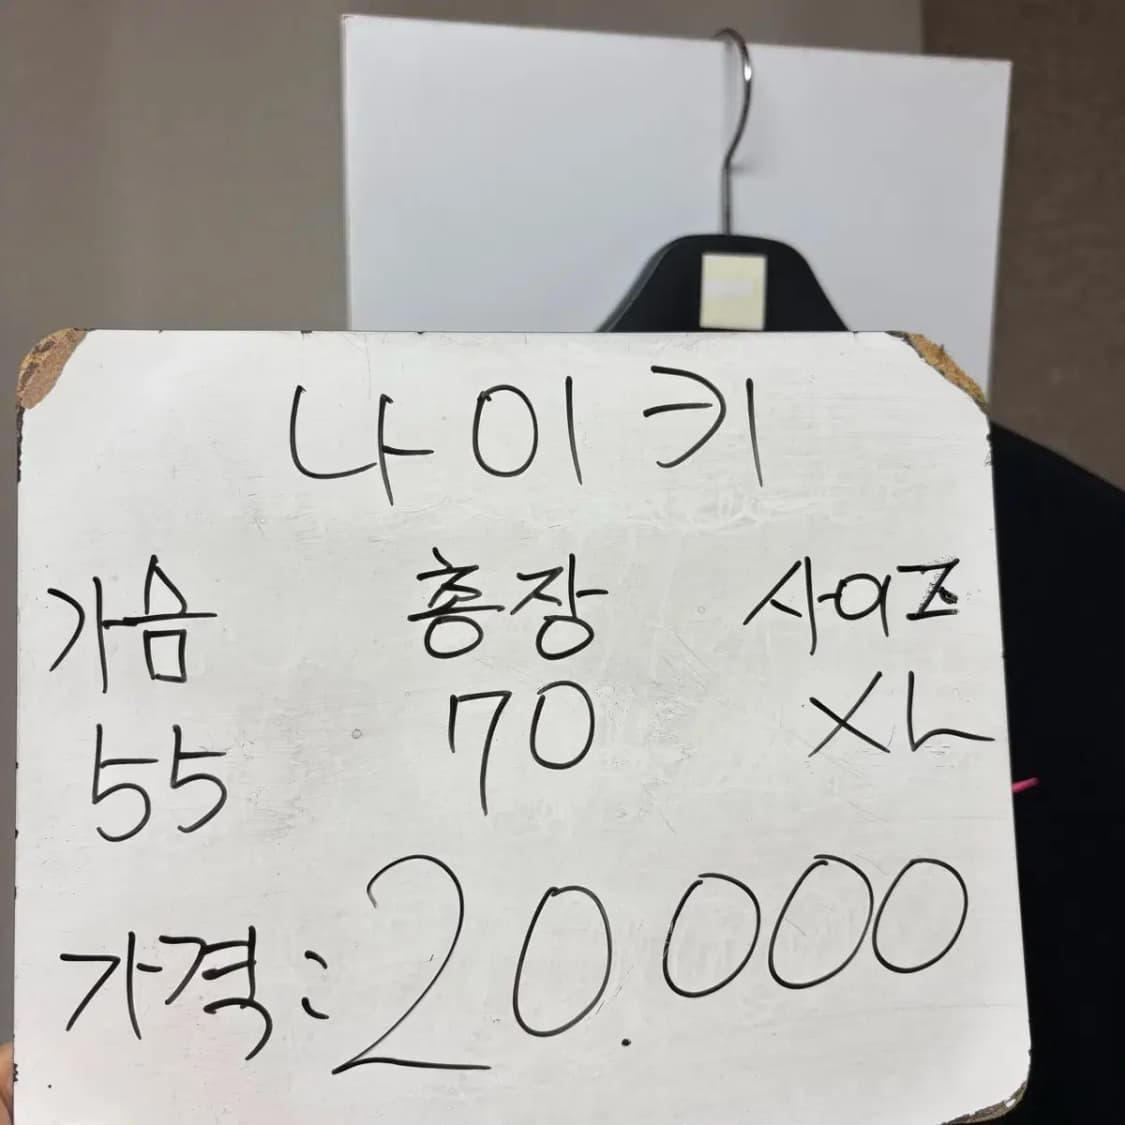 나이키
가슴 총장 사이즈
55 70 XL
가격: 20.000